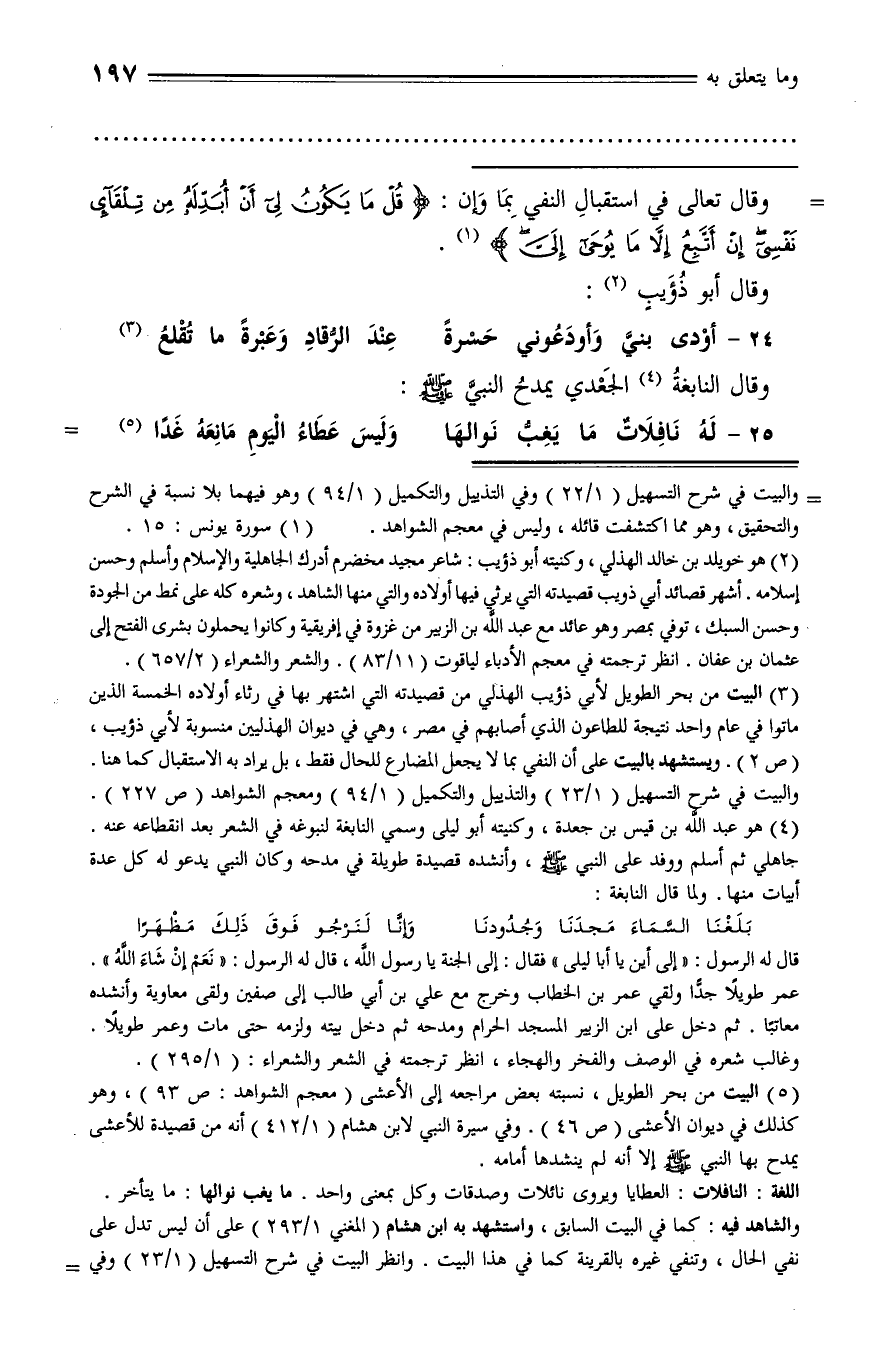 وما يتعلق به ١٩٧
= وقال تعالى في استقبالِ النفي بِمَا وَإن : ﴿ قُلْ مَا يَكُونُ لِيٓ أَنْ أُبَدِّلَهُۥ مِن تِلْقَآيِٕ
نَفْسِيٓ إِنْ أَتَّبِعُ إِلَّا مَا يُوحَىٰٓ إِلَيَّ ﴾ (١) .
وقال أبو ذُؤَيبٍ (٢) :
٢٤ - أوْدى بنيَّ وَأودَعُوني حَسْرةً عِنْدَ الرُّقادِ وَعَبْرةً ما تُقْلعُ (٣)
وقال النابغةُ (٤) الجَعْدي يمدحُ النبيَّ ﷺ :
٢٥ - لَهُ نَافِلَاتٌ مَا يَغِبُّ نَوالهَا وَلَيسَ عَطَاءُ الْيَومِ مَانِعَهُ غَدًا (٥) =
= والبيت في شرح التسهيل ( ٢٢/١ ) وفي التذييل والتكميل ( ٩٤/١ ) وهو فيهما بلا نسبة في الشرح
والتحقيق ، وهو مما اكتشفت قائله ، وليس في معجم الشواهد . (١) سورة يونس : ١٥ .
(٢) هو خويلد بن خالد الهذلي ، وكنيته أبو ذؤيب : شاعر مجيد مخضرم أدرك الجاهلية والإسلام وأسلم وحسن
إسلامه . أشهر قصائد أبي ذويب قصيدته التي يرثي فيها أولاده والتي منها الشاهد ، وشعره كله على نمط من الجودة
وحسن السبك ، توفي بمصر وهو عائد مع عبد اللَّه بن الزبير من غزوة في إفريقية وكانوا يحملون بشرى الفتح إلى
عثمان بن عفان . انظر ترجمته في معجم الأدباء لياقوت ( ٨٣/١١ ) . والشعر والشعراء ( ٦٥٧/٢ ) .
(٣) البيت من بحر الطويل لأبي ذؤيب الهذلي من قصيدته التي اشتهر بها في رثاء أولاده الخمسة الذين
ماتوا في عام واحد نتيجة للطاعون الذي أصابهم في مصر ، وهي في ديوان الهذليين منسوبة لأبي ذؤيب ،
( ص ٢ ) . ويستشهد بالبيت على أن النفي بما لا يجعل المضارع للحال فقط ، بل يراد به الاستقبال كما هنا .
والبيت في شرح التسهيل ( ٢٣/١ ) والتذييل والتكميل ( ٩٤/١ ) ومعجم الشواهد ( ص ٢٢٧ ) .
(٤) هو عبد اللَّه بن قيس بن جعدة ، وكنيته أبو ليلى وسمي النابغة لنبوغه في الشعر بعد انقطاعه عنه .
جاهلي ثم أسلم ووفد على النبي ﷺ ، وأنشده قصيدة طويلة في مدحه وكان النبي يدعو له كل عدة
أبيات منها . ولما قال النابغة :
بَلَغْنَا السَّمَاءَ مَجدَنَا وَجُدُودنَا وَإِنَّا لَنَرْجُو فَوقَ ذَلِكَ مَظْهَرًا
قال له الرسول : « إلى أين يا أبا ليلى » فقال : إلى الجنة يا رسول اللَّه ، قال له الرسول : « نَعَمْ إنْ شَاءَ اللَّهُ » .
عمر طويلًا جدًّا ولقي عمر بن الخطاب وخرج مع علي بن أبي طالب إلى صفين ولقى معاوية وأنشده
معاتبًا . ثم دخل على ابن الزبير المسجد الحرام ومدحه ثم دخل بيته ولزمه حتى مات وعمر طويلًا .
وغالب شعره في الوصف والفخر والهجاء ، انظر ترجمته في الشعر والشعراء : ( ٢٩٥/١ ) .
(٥) البيت من بحر الطويل ، نسبته بعض مراجعه إلى الأعشى ( معجم الشواهد : ص ٩٣ ) ، وهو
كذلك في ديوان الأعشى ( ص ٤٦ ) . وفي سيرة النبي لابن هشام ( ٤١٢/١ ) أنه من قصيدة للأعشى
يمدح بها النبي ﷺ إلا أنه لم ينشدها أمامه .
اللغة : النافلات : العطايا ويروى نائلات وصدقات وكل بمعنى واحد . ما يغب نوالها : ما يتأخر .
والشاهد فيه : كما في البيت السابق ، واستشهد به ابن هشام ( المغني ٢٩٣/١ ) على أن ليس تدل على
نفي الحال ، وتنفي غيره بالقرينة كما في هذا البيت . وانظر البيت في شرح التسهيل ( ٢٣/١ ) وفي =